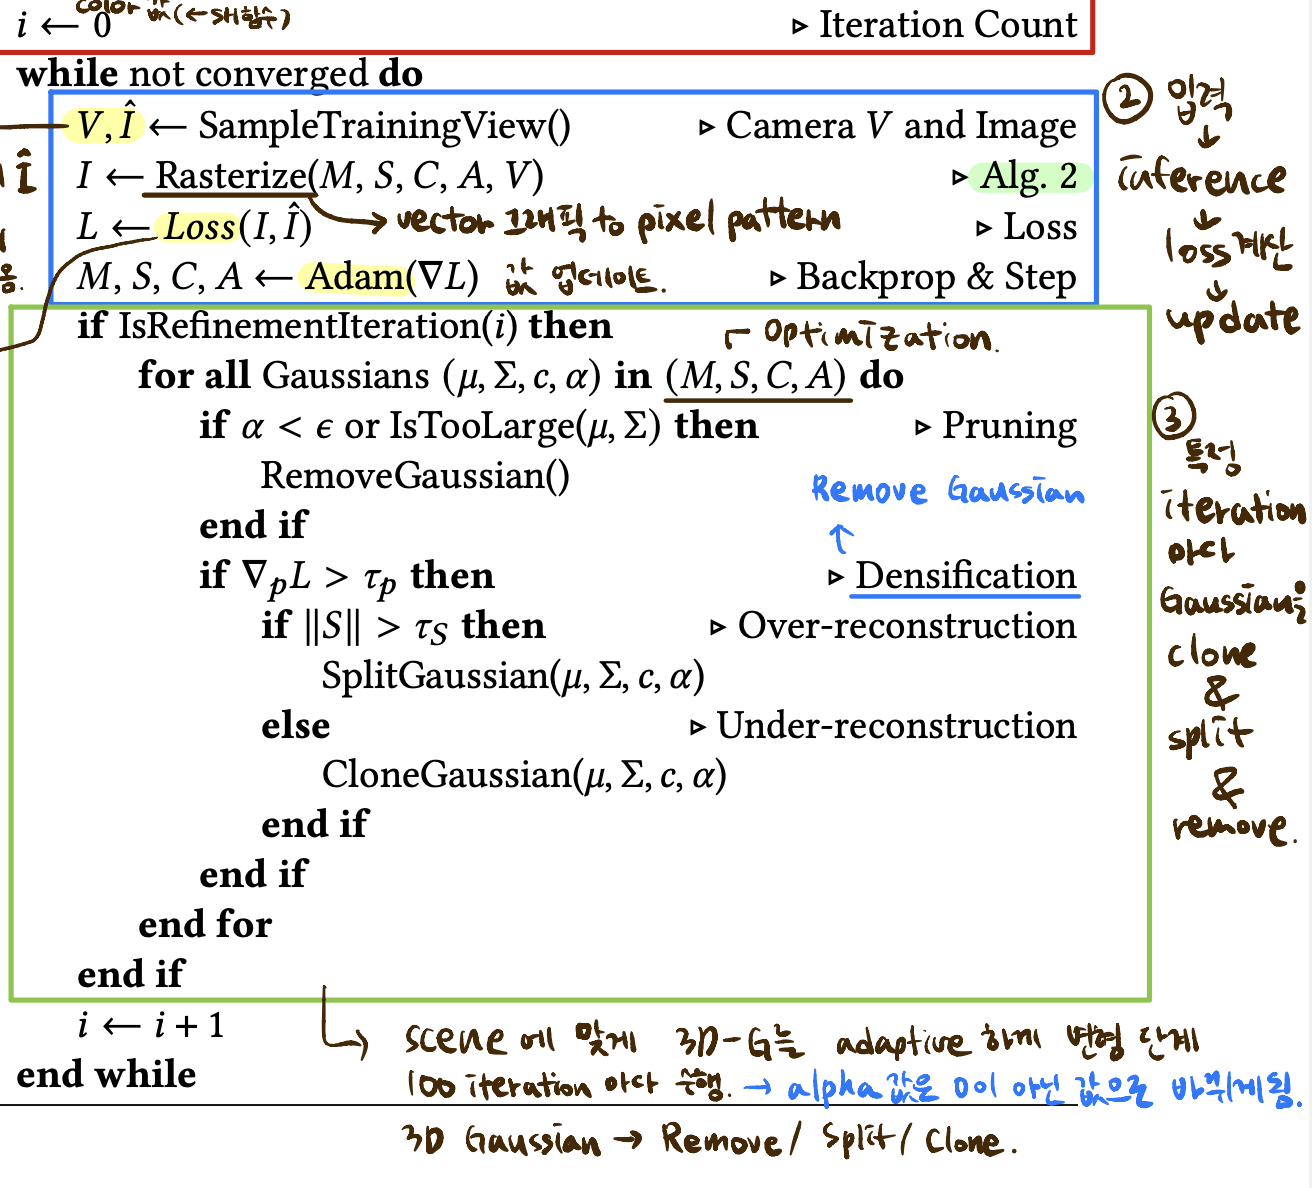 color 값(←SH함수)
i ← 0 ▷ Iteration Count
while not converged do
V, Î ← SampleTrainingView() ▷ Camera V and Image
I ← Rasterize(M, S, C, A, V) ▷ Alg. 2
Î
→ vector 그래픽 to pixel pattern
L ← Loss(I, Î) ▷ Loss
M, S, C, A ← Adam(∇L) 값 업데이트. ▷ Backprop & Step
② 입력
↓
inference
↓
loss 계산
↓
update
if IsRefinementIteration(i) then
Optimization.
for all Gaussians (μ, Σ, c, α) in (M, S, C, A) do
if α < ϵ or IsTooLarge(μ, Σ) then ▷ Pruning
RemoveGaussian()
Remove Gaussian
↑
end if
if ∇ₚL > τₚ then ▷ Densification
if ‖S‖ > τ_S then ▷ Over-reconstruction
SplitGaussian(μ, Σ, c, α)
else ▷ Under-reconstruction
CloneGaussian(μ, Σ, c, α)
end if
end if
end for
end if
③
특정
iteration
마다
Gaussian을
clone
&
split
&
remove.
i ← i + 1
end while
scene에 맞게 3D-G를 adaptive 하게 변형 단계
100 iteration 마다 수행. → alpha 값은 0이 아닌 값으로 바뀌게 됨.
3D Gaussian → Remove / Split / Clone.